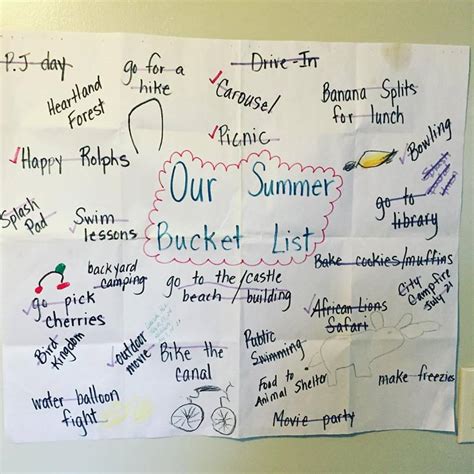 P.J day
go for a
hike
Drive-In
Heartland
Forest
Carousel
Banana Splits
for lunch
Picnic
Happy Rolphs
Bowling
Our Summer
Bucket List
Splash
Pad
Swim
lessons
go to
library
backyard
camping
Bake cookies/muffins
go to the/castle
beach/building
City
Campfire
July 21
go pick
cherries
African Lions
Safari
Bird
Kingdom
outdoor
movie
Bike the
canal
Public
Swimming
Food to
Animal Shelter
make freezies
water balloon
fight
Movie party